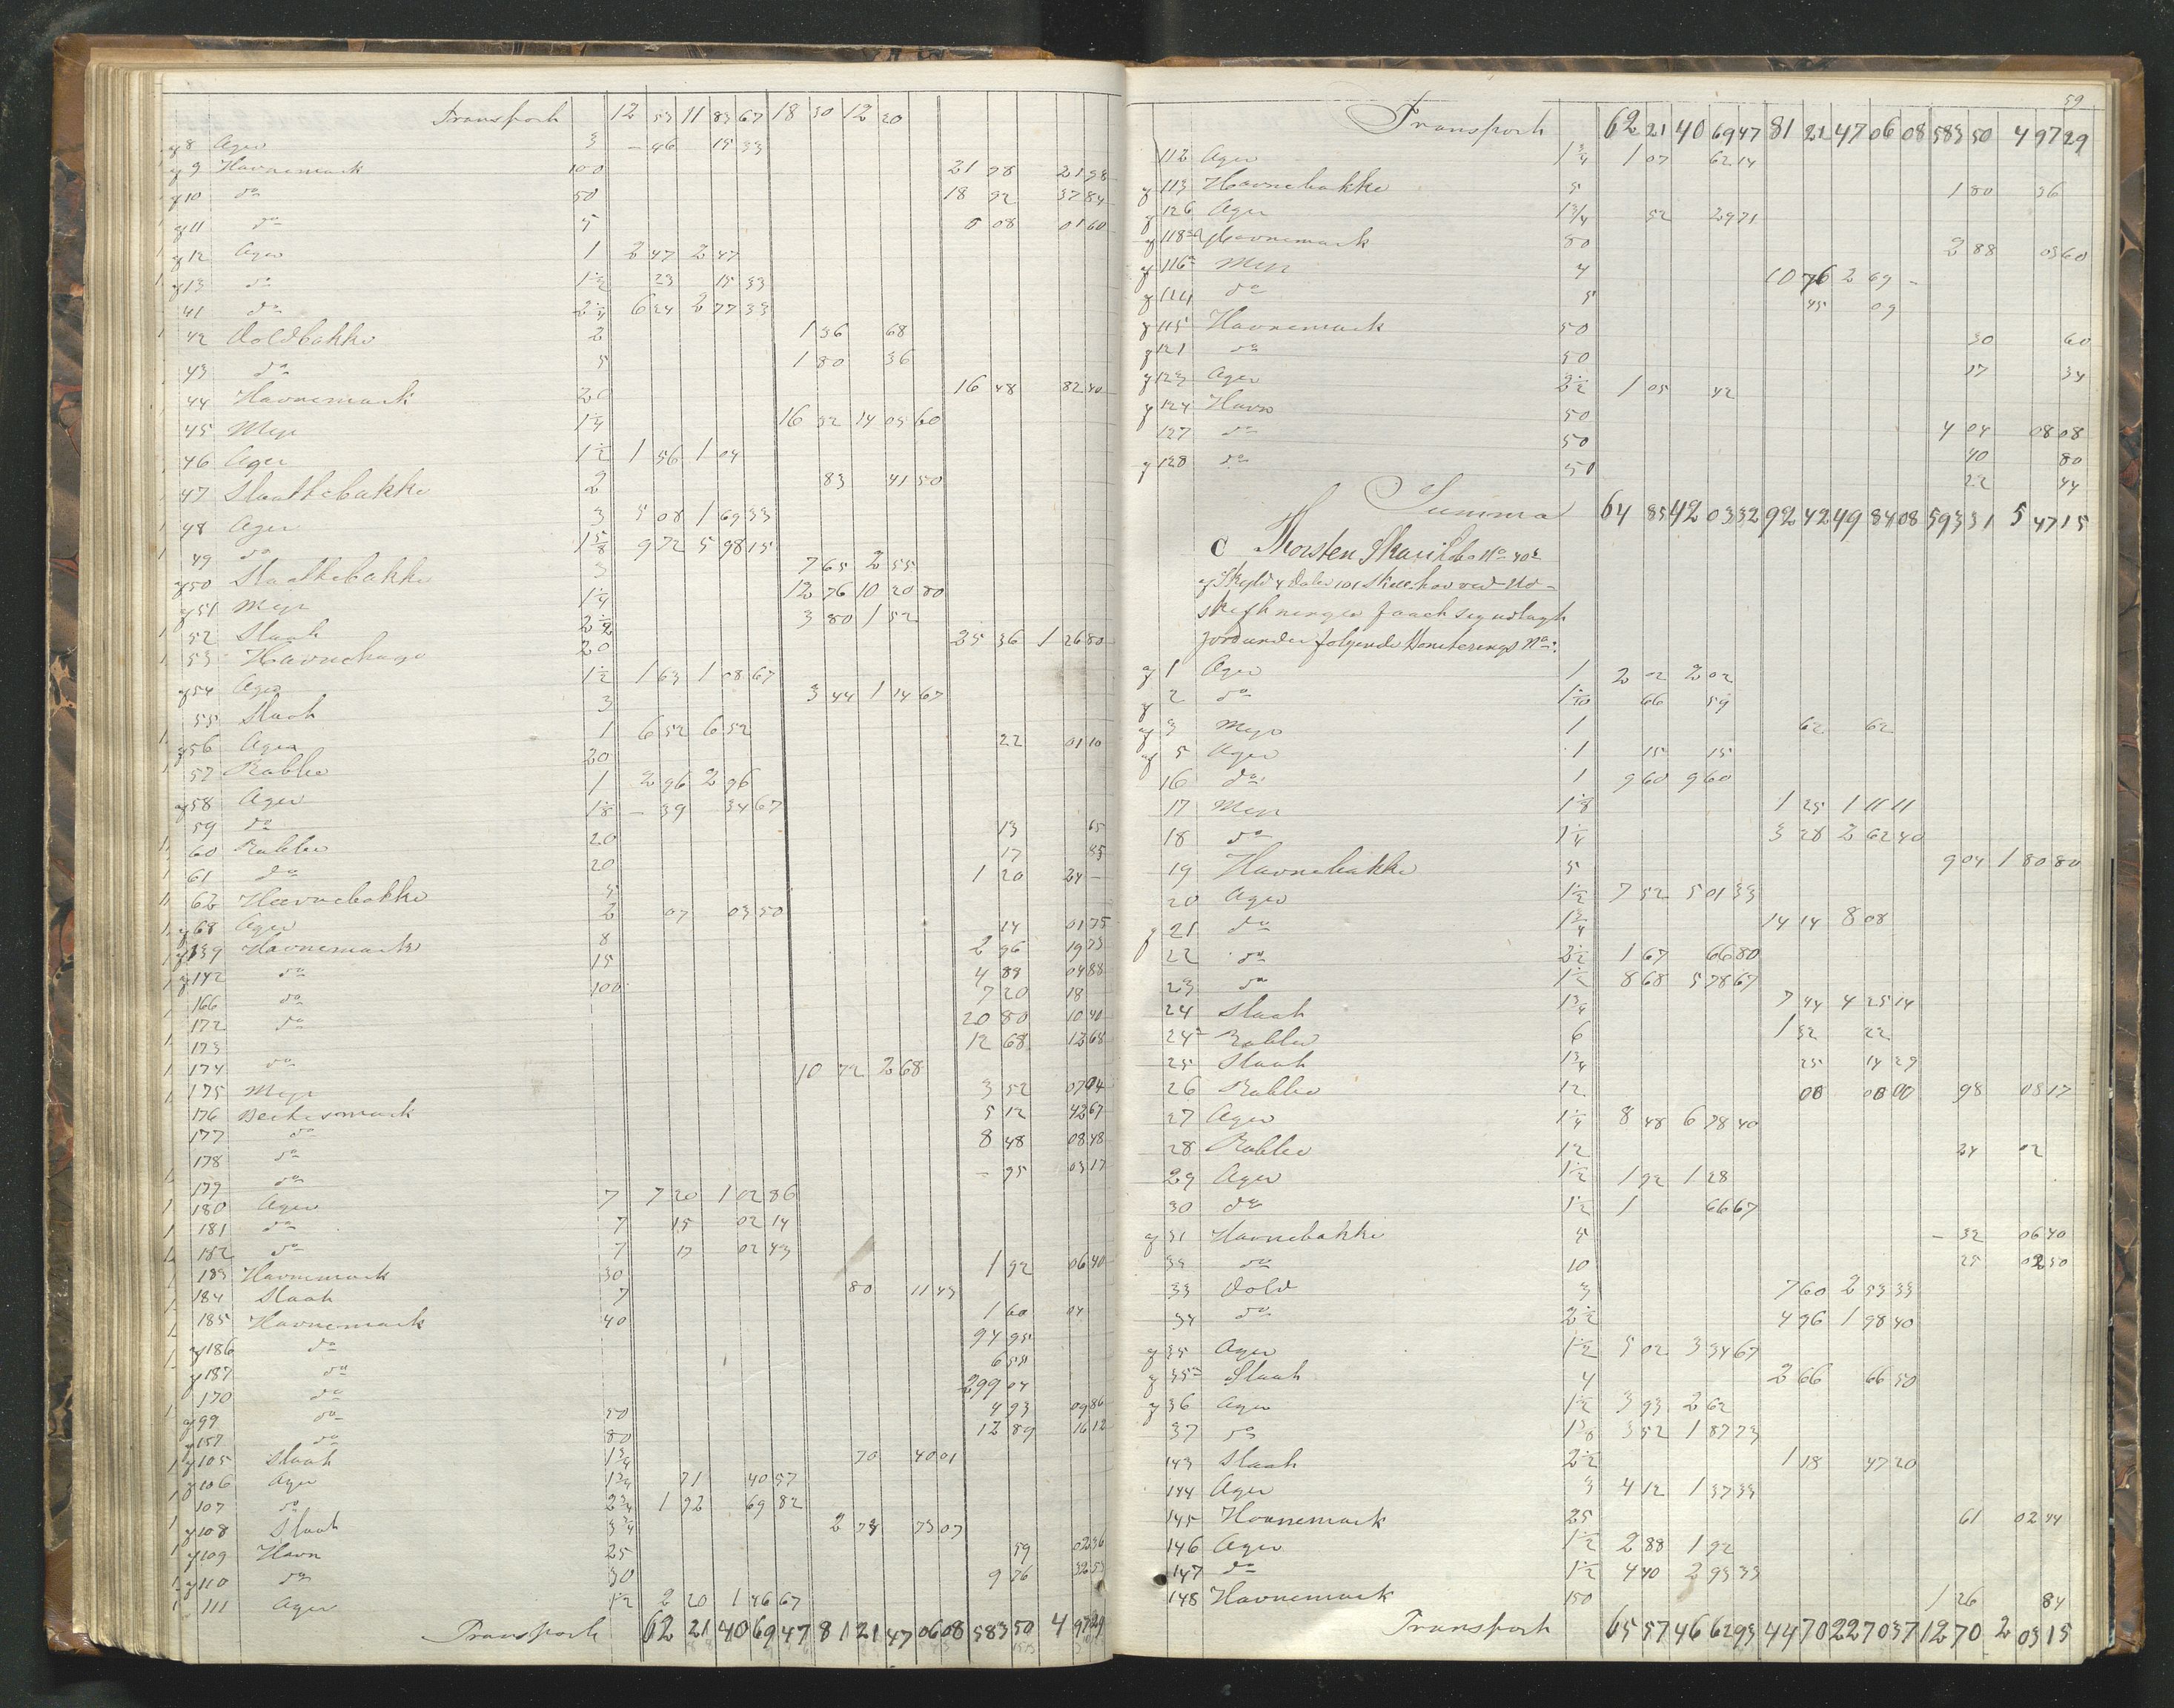 Transport 12 53 11 83 67 18 30 12 20
y 8 Ager 3 – 46 15 33
y 9 Havnemark 100 21 98 21 98
y 10 do 50 18 92 37 84
y 11 do 5 08 01 60
y 12 Ager 1 2 47 2 47
y 13 do 1 1/2 23 15 33
41 do 2 1/4 6 24 2 77 33
42 Voldbakke 2 1 36 68
43 do 5 1 80 36
44 Havnemark 20 16 48 82 40
45 Myr 1 1/4 16 32 14 05 60
46 Ager 1 1/2 1 56 1 04
47 Slaattebakke 2 83 41 50
48 Ager 3 5 08 1 69 33
49 do 1 5/8 9 72 5 98 15
y 50 Slaattebakke 3 7 65 2 55
y 51 Myr 1 1/4 12 76 10 20 80
52 Slaat 2 1/2 3 80 1 52
53 Havnehage 20 25 36 1 26 80
y 54 Ager 1 1/2 1 63 1 08 67
55 Slaat 3 3 44 1 14 67
y 56 Ager 1 6 52 6 52
57 Rabbe 20 22 01 10
y 58 Ager 1 2 96 2 96
59 do 1 1/8 – 39 34 67
60 Rabbe 20 13 65
61 do 20 17 85
62 Havnebakke 5 1 20 24 –
y 68 Ager 2 07 03 50
y 139 Havnemark 8 14 01 75
y 142 do 15 2 96 19 73
166 do 100 4 89 04 88
172 do 7 20 18
173 20 80 10 40
174 do 12 68 12 68
175 Myr 10 72 2 68
176 Beitesmark 3 52 07 04
177 do 5 12 42 67
178 do 8 48 08 48
179 do – 95 03 17
180 Ager 7 7 20 1 02 86
181 do 7 15 02 14
182 do 7 17 02 43
183 Havnemark 30 1 92 06 40
184 Slaat 7 80 11 43
185 Havnemark 40 1 60 04
y 186 do 94 95
y 187 do 6 55
170 do 299 04
y 99 do 50 4 93 09 86
y 157 do 80 12 89 16 12
y 105 Slaat 1 3/4 70 40 01
y 106 Ager 1 3/4 71 40 57
107 do 2 3/4 1 92 69 82
y 108 Slaat 3 3/4 2 74 73 07
y 109 Havn 25 59 02 36
y 110 do 30 9 76 32 53
111 Ager 1 1/2 2 20 1 46 67
Transport 62 21 40 69 47 81 21 47 06 08 583 50 4 97 29
59
Transport 62 21 40 69 47 81 21 47 06 08 583 50 4 97 29
112 Ager 1 3/4 1 07 62 14
y 113 Havnebakke 5 1 80 36
y 126 Ager 1 3/4 52 29 71
y 118 a Havnemark 80 2 88 03 60
y 116 a Myr 4 10 76 2 69 –
y 114 do 5 45 09
y 115 Havnemark 50 30 60
y 121 do 50 17 34
y 123 Ager 2 1/2 1 05 42
y 124 Havn 50 4 04 08 08
127 do 50 40 80
y 128 do 50 22 44
Summa 64 85 42 03 32 92 42 49 84 08 593 31 5 47 15
C Thorsten No 40
af Skyld 4 Daler 101 Skill. har ved Ud-
skiftningen faaet sig udlagt
Jord under følgende Boniterings No:
y 1 Ager 1 2 02 2 02
y 2 do 1 1/10 66 59
y 3 Myr 1 62 62
y 5 Ager 1 15 15
16 do 1 9 60 9 60
17 Myr 1 1/8 1 25 1 11 11
18 do 1 1/4 3 28 2 62 40
19 Havnebakke 5 9 04 1 80 80
20 Ager 1 1/2 7 52 5 01 33
y 21 do 1 3/4 14 14 8 08
22 do 2 1/2 1 67 66 80
23 do 1 1/2 8 68 5 78 67
24 Slaat 1 3/4 7 44 4 25 14
24 a Rabbe 6 1 32 22
25 Slaat 1 3/4 25 14 29
26 Rabbe 12 00 00 00 98 08 17
27 Ager 1 1/4 8 48 6 78 40
28 Rabbe 12 24 02
29 Ager 1 1/2 1 92 1 28
30 do 1 1/2 1 66 67
y 31 Havnebakke 5 – 32 06 40
32 do 10 25 02 50
33 Vold 3 7 60 2 53 33
34 do 2 1/2 4 96 1 98 40
y 35 Ager 1 1/2 5 02 3 34 67
y 35 a Slaat 4 2 66 66 50
y 36 Ager 1 1/2 3 93 2 62
37 do 1 7/8 3 52 1 87 73
143 Slaat 2 1/2 1 18 47 20
144 Ager 3 4 12 1 37 33
145 Havnemark 25 61 02 44
146 Ager 1 1/2 2 88 1 92
147 do 1 1/2 4 40 2 93 33
148 Havnemark 150 1 26 84
Transport 65 57 46 62 93 44 70 22 70 37 12 70 2 03 15